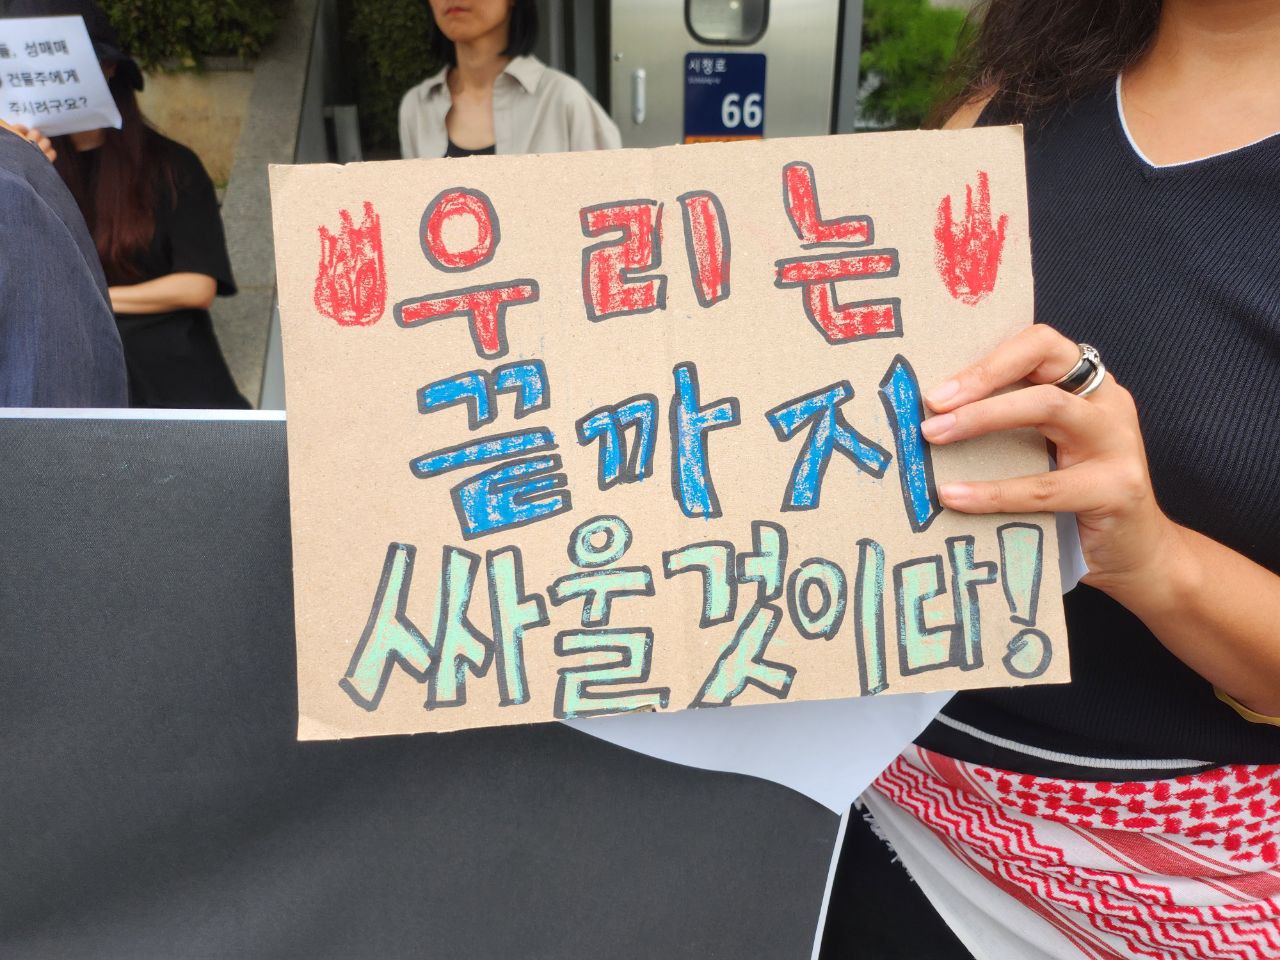 성매매
건물주에게
주시려구요?
시청로
66
우리는
끝까지
싸울것이다!